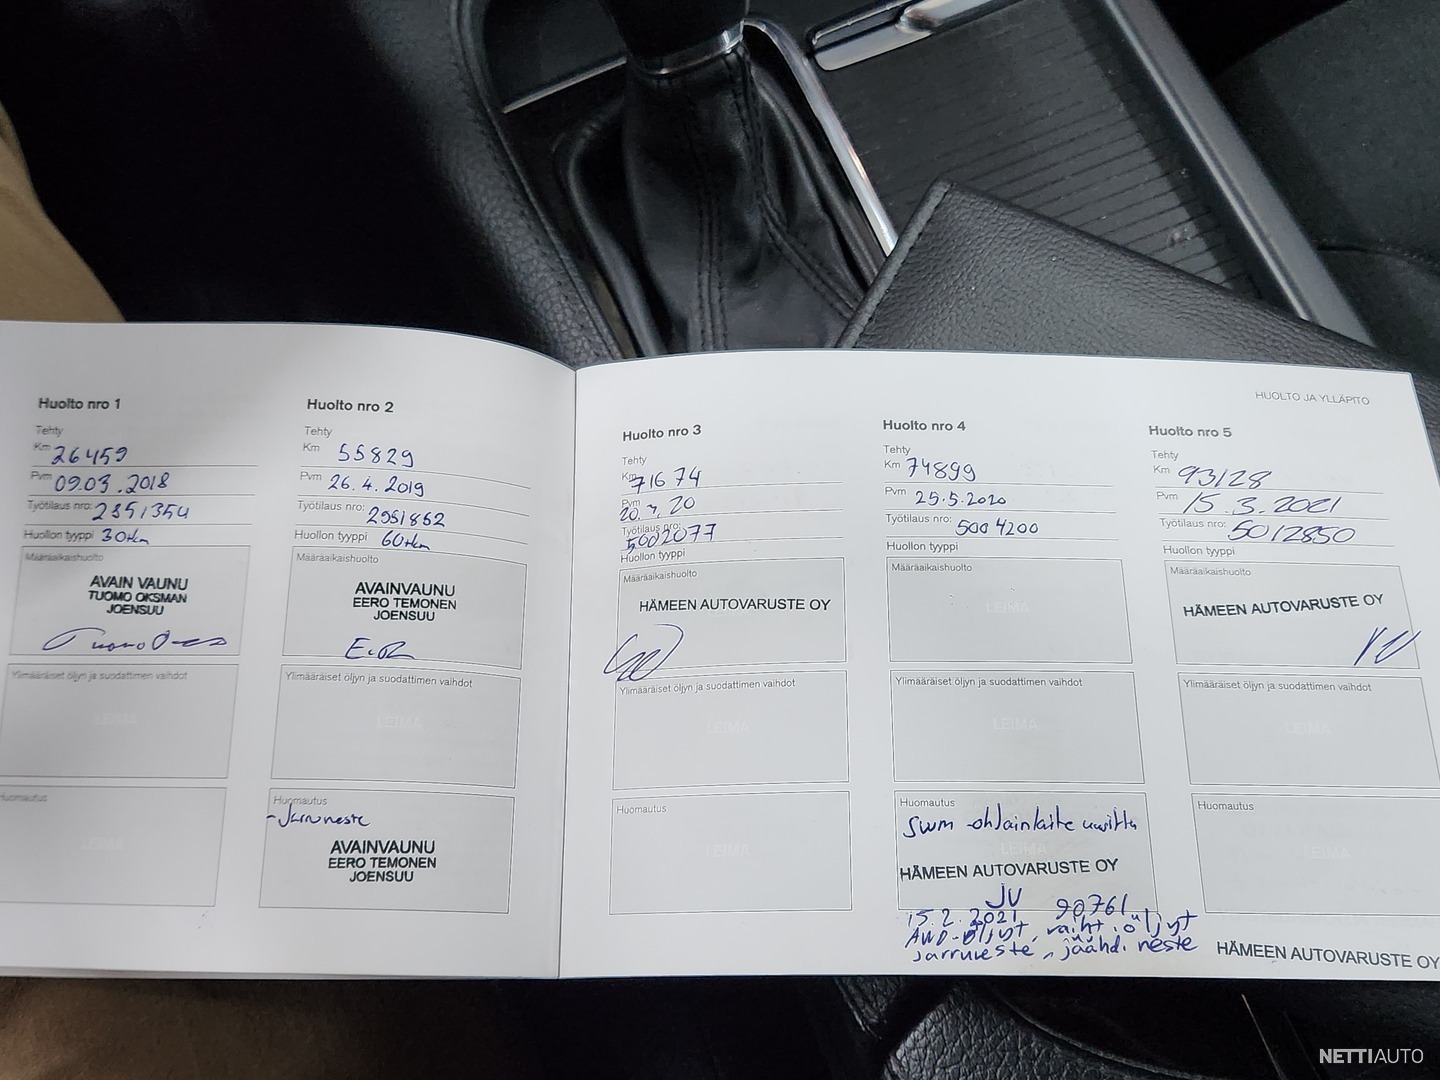 HUOLTO JA YLLÄPITO
Huolto nro 1
Tehty
Km 26459
Pvm 09.03.2018
Työtilaus nro: 2351354
Huollon tyyppi 30tkm
Määräaikaishuolto
AVAIN VAUNU
TUOMO OKSMAN
JOENSUU
Ylimääräiset öljyn ja suodattimen vaihdot
LEIMA
Huomautus
LEIMA
Huolto nro 2
Tehty
Km 55829
Pvm 26.4.2019
Työtilaus nro: 2951862
Huollon tyyppi 60tkm
Määräaikaishuolto
AVAINVAUNU
EERO TEMONEN
JOENSUU
Ylimääräiset öljyn ja suodattimen vaihdot
LEIMA
Huomautus
- Jarruneste
AVAINVAUNU
EERO TEMONEN
JOENSUU
Huolto nro 3
Tehty
Km 71674
Pvm
Työtilaus nro: 5002077
Huollon tyyppi
Määräaikaishuolto
HÄMEEN AUTOVARUSTE OY
Ylimääräiset öljyn ja suodattimen vaihdot
LEIMA
Huomautus
LEIMA
Huolto nro 4
Tehty
Km 74899
Pvm 25.5.2020
Työtilaus nro: 5004200
Huollon tyyppi
Määräaikaishuolto
LEIMA
Ylimääräiset öljyn ja suodattimen vaihdot
LEIMA
Huomautus
SWM -ohjainlaite uusittu
LEIMA
HÄMEEN AUTOVARUSTE OY
JV
15.2.2021 90761
AWD-öljyt, vaiht.öljyt
jarruneste, jäähd.neste
Huolto nro 5
Tehty
Km 93128
Pvm 15.3.2021
Työtilaus nro: 5012850
Huollon tyyppi
Määräaikaishuolto
HÄMEEN AUTOVARUSTE OY
Ylimääräiset öljyn ja suodattimen vaihdot
LEIMA
Huomautus
LEIMA
HÄMEEN AUTOVARUSTE OY
NETTIAUTO